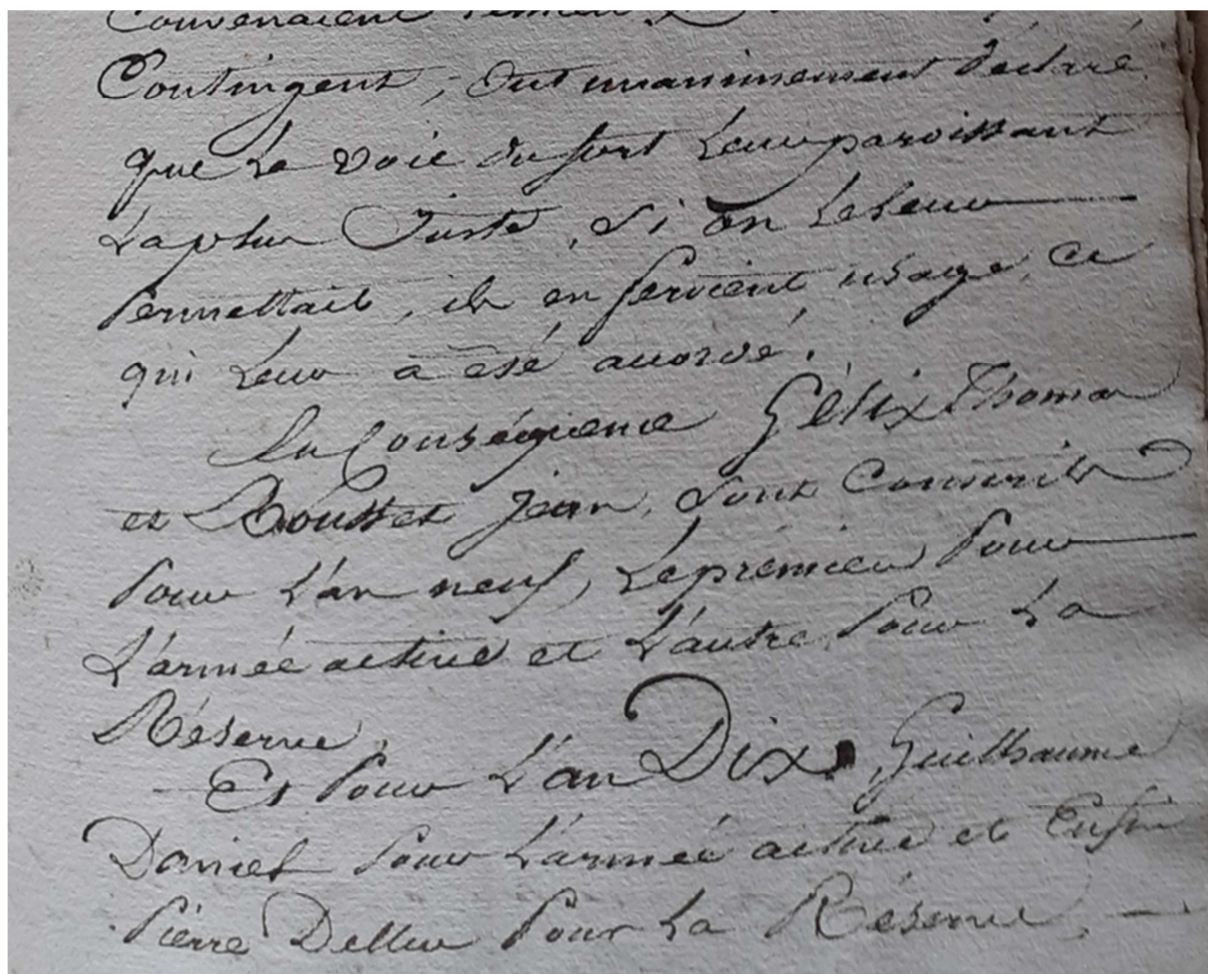 Convenaient
Contingent, ont unanimement déclaré
que La voie du sort Leur paroissant
La plus Juste, Si on Le Leur
Permettait, ils en feroient usage, ce
qui Leur a été accordé.
En Conséquence Gélix Thomas
et Rousset Jean, Sont Conscrits
Pour L'an neuf, Le premier Pour
L'armée active et L'autre Pour La
Réserve.
Et Pour L'an Dix, Guilhaume
Daniel Pour L'armée active et Enfin
Pierre Delleu Pour La Réserve.